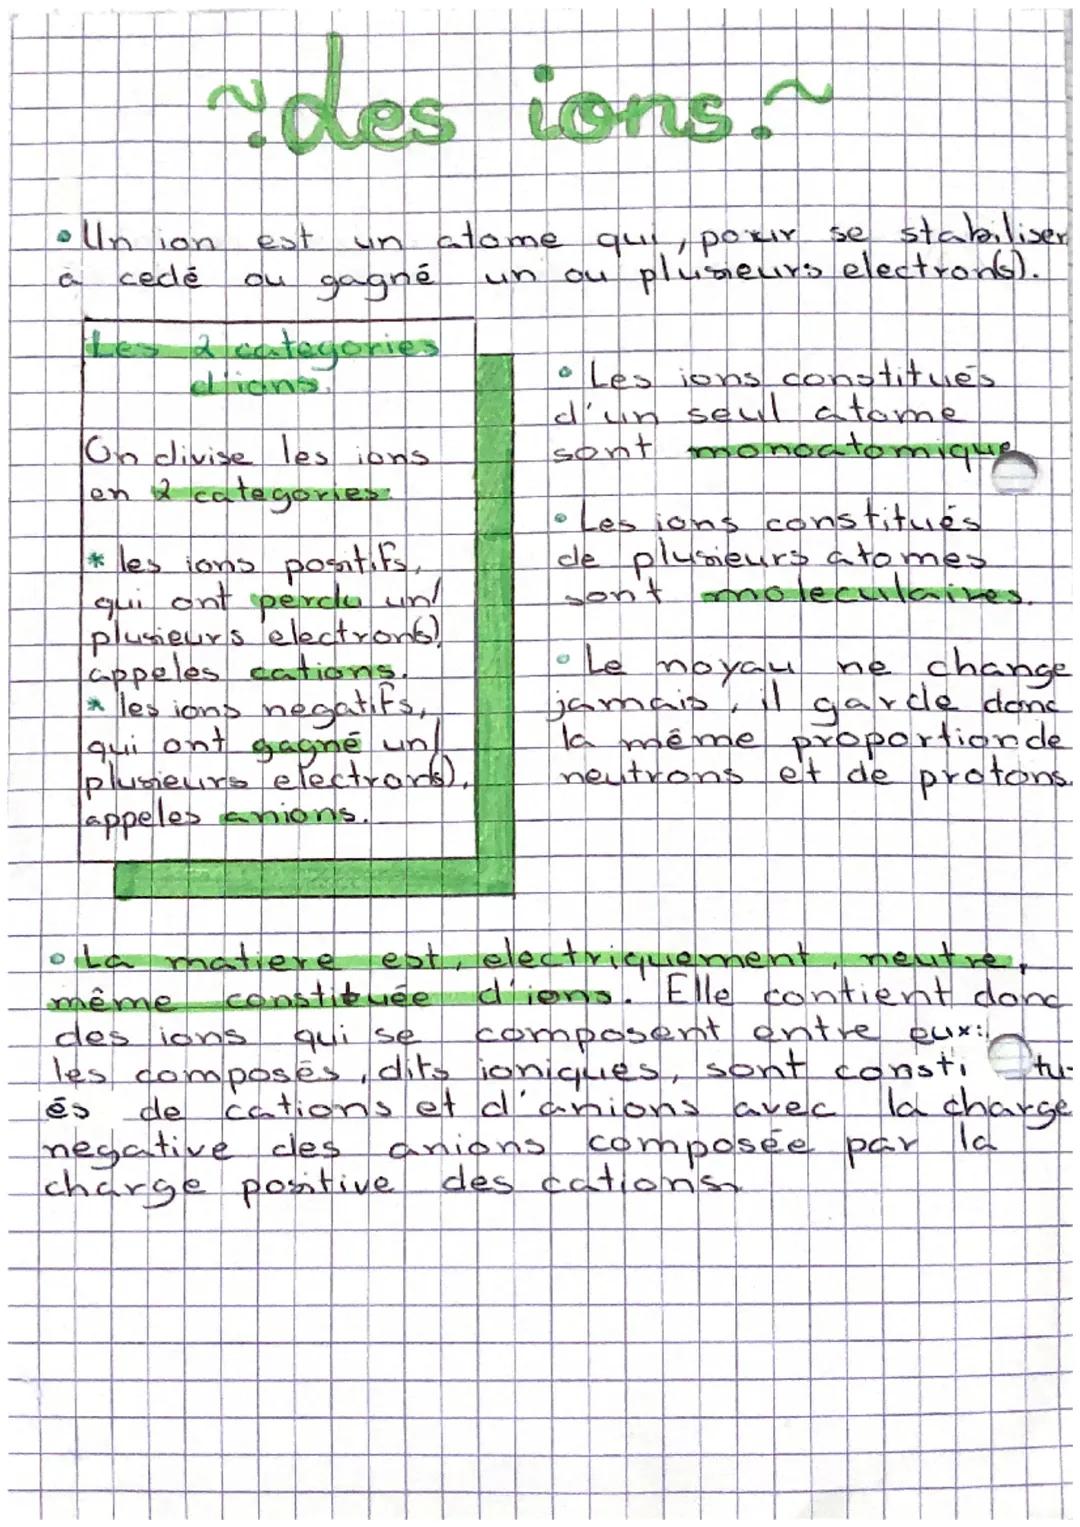 ~: des ions :~
• Un ion est un atome qui, pour se stabiliser
a cedé ou gagné un ou plusieurs electron(s).
Les 2 categories
d'ions.
On divise les ions
en 2 categories:
* les ions positifs,
qui ont perdu un/
plusieurs electron(s),
appeles cations.
* les ions negatifs,
qui ont gagné un/
plusieurs electron(s),
appeles anions.
• Les ions constitués
d'un seul atome
sont monoatomique
• Les ions constitués
de plusieurs atomes
sont moleculaires.
• Le noyau ne change
jamais, il garde donc
la même proportion de
neutrons et de protons.
• La matiere est, electriquement, neutre,
même constituée d'ions. Elle contient donc
des ions qui se composent entre eux:
les composés, dits ioniques, sont consti tu-
és de cations et d'anions avec la charge
negative des anions composée par la
charge positive des cations.